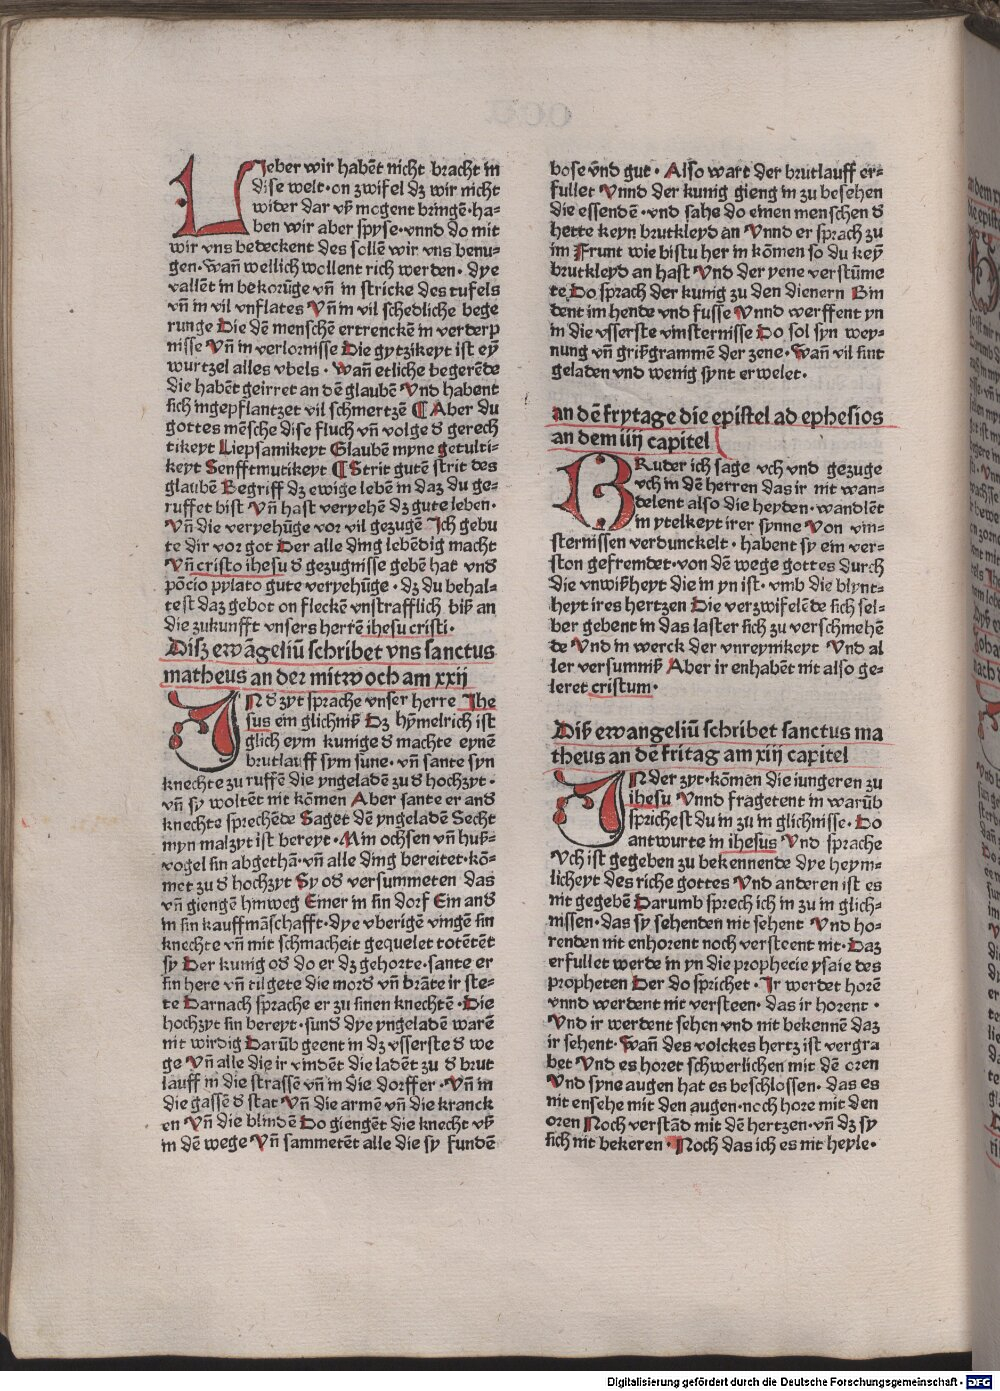 Lieber wir habēt nicht bracht in
dise welt·on zwifel dz wir nicht
wider dar vß mogent bringē·ha-
ben wir aber spyse·vnnd do mit
wir vns bedeckent des sollē wir vns benu-
gen·Wañ wellich wollent rich werden·dye
vallēt in bekorūge vñ in stricke des tufels
vñ in vil vnflates Vñ in vil schedliche bege
runge Die dē menschē ertrenckē in verderp
nisse Vñ in verlornisse Die gytzikeyt ist eyn̄
wurtzel alles vbels·Wañ etliche begerēde
die habēt geirret an dē glaubē Vnd habent
sich ingepflantzet vil schmertzē ¶ Aber du
gottes mēsche dise fluch vñ volge d gerech
tikeyt Liepsamikeyt Glaubē myne getulti-
keyt Senfftmutikeyt ¶ Strit gutē strit des
glaubē Begriff dz ewige lebē in daz du ge-
ruffet bist Vñ hast veryehē dz gute leben·
Vñ die veryehūge vor vil gezugē Ich gebu
te dir vor got Der alle ding lebēdig macht
Vñ cristo ihesu d gezugnisse gebē hat vnd
pōcio pylato gute veryehūge·dz du behal-
test daz gebot on fleckē vnstrafflich biß an
die zukunfft vnsers herrē ihesu cristi·
Disz ewāgeliū schribet vns sanctus
matheus an der mitwoch am xxij
IN d zyt sprache vnser herre Ihe
sus ein glichniß Dz hȳmelrich ist
glich eym kunige d machte eynē
brutlauff sym sune·vñ sante syn
knechte zu ruffē die yngeladē zu d hochzyt·
vñ sy woltēt nit kōmen Aber sante er and
knechte sprechēde Saget dē yngeladē Secht
myn malzyt ist bereyt·Min ochsen vñ huß-
vogel sin abgethā·vñ alle ding bereitet·kō-
met zu d hochzyt Sy od versummeten das
vñ giengē hinweg Einer in sin dorf Ein and
in sin kauffmāschafft·dye vberige vingē sin
knechte vñ mit schmacheit gequelet totētēt
sy Der kunig od do er dz gehorte·sante er
sin here vñ tilgete die mord vñ brāte ir ste-
te Darnach sprache er zu sinen knechtē·Die
hochzyt sin bereyt·sund dye yngeladē warē
nit wirdig Darūb geent in dz vsserste d we
ge Vñ alle die ir vindēt die ladēt zu d brut
lauff in die strassē vñ in die dorffer·Vñ in
die gassē d stat Vñ die armē vñ die kranck
en Vñ die blindē Do giengēt die knecht vß
in dē wege Vñ sammetēt alle die sy fundē
bose vn̄d gut·Also wart der brutlauff er-
fullet Vnnd der kunig gieng in zu besehen
die essendē·vnd sahe do einen menschen d
hette keyn brutkleyd an Vnnd er sprach zu
im Frunt wie bistu her in kōmen so du keyn̄
brutkleyd an hast Vnd der yene verstūme
te Do sprach der kunig zu den dienern Bin
dent im hende vnd fusse Vnnd werffent yn
in die vsserste vinsternisse Do sol syn wey-
nung vñ grißgrammē der zene·Wañ vil sint
geladen vnd wenig synt erwelet·
an dē frytage die epistel ad ephesios
an dem iiij capitel
BRuder ich sage vch vnd gezuge
vch in dē herren das ir nit wan-
delent also die heyden·wandlēt
in ytelkeyt irer synne Von vin-
sternissen verdunckelt·habent sy ein ver-
ston gefremdet·von dē wege gottes durch
die vnwißheyt die in yn ist·vmb die blynt-
heyt ires hertzen Die verzwifelēde sich sel-
ber gebent in das laster sich zu verschmehē
de Vnd in werck der vnreynikeyt Vnd al
ler versumniß Aber ir enhabēt nit also ge-
leret cristum·
Diß ewangeliū schribet sanctus ma
theus an dē fritag am xiij capitel
IN der zyt·kōmen die iungeren zu
ihesu Vnnd fragetent in warūb
sprichest du in zu in glichnisse·Do
antwurte in ihesus Vnd sprache
Vch ist gegeben zu bekennende dye heym-
licheyt des riche gottes Vnd anderen ist es
nit gegebē Darumb sprech ich in zu in glich-
nissen·das sy sehenden nit sehent Vnd ho-
renden nit enhorent noch versteent nit·Daz
erfullet werde in yn die prophecie ysaie des
propheten Der do sprichet·Ir werdet horē
vnnd werdent nit versteen·das ir horent·
Vnd ir werdent sehen vnd nit bekennē daz
ir sehent·Wañ des volckes hertz ist vergra
bet Vnd es horet schwerlichen mit dē oren
Vnd syne augen hat es beschlossen·das es
nit ensehe mit den augen·noch hore mit den
oren Noch verstād mit dē hertzen·vñ dz sy
sich nit bekeren·Noch das ich es nit heyle·
Digitalisierung gefördert durch die Deutsche Forschungsgemeinschaft - DFG